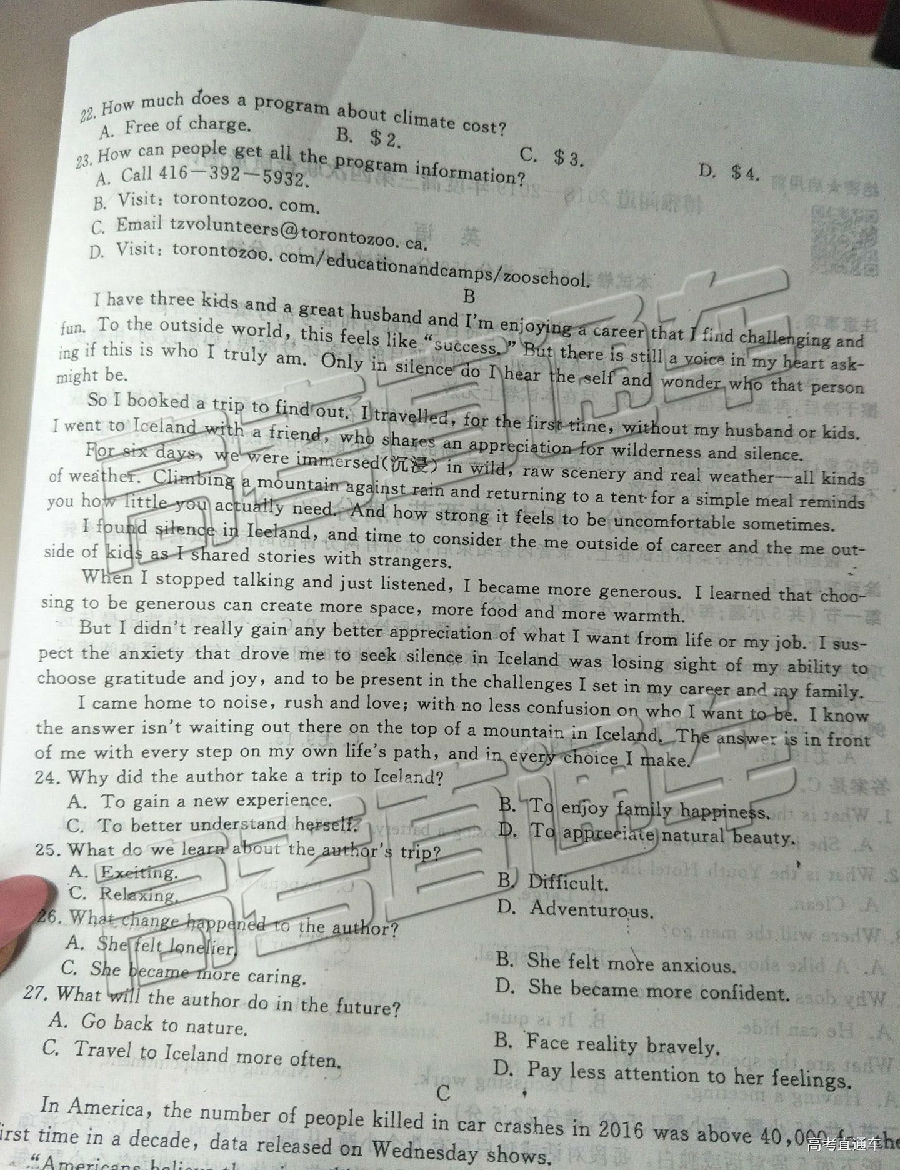 22. How much does a program about climate cost?
A. Free of charge. B. $2. C. $3. D. $4.
23. How can people get all the program information?
A. Call 416—392—5932.
B. Visit: torontozoo. com.
C. Email tzvolunteers@torontozoo. ca.
D. Visit: torontozoo. com/educationandcamps/zooschool.
B
I have three kids and a great husband and I'm enjoying a career that I find challenging and
fun. To the outside world, this feels like “success.” But there is still a voice in my heart ask-
ing if this is who I truly am. Only in silence do I hear the self and wonder who that person
might be.
So I booked a trip to find out. I travelled, for the first time, without my husband or kids.
I went to Iceland with a friend, who shares an appreciation for wilderness and silence.
For six days, we were immersed(沉浸) in wild, raw scenery and real weather—all kinds
of weather. Climbing a mountain against rain and returning to a tent for a simple meal reminds
you how little you actually need. And how strong it feels to be uncomfortable sometimes.
I found silence in Iceland, and time to consider the me outside of career and the me out-
side of kids as I shared stories with strangers.
When I stopped talking and just listened, I became more generous. I learned that choo-
sing to be generous can create more space, more food and more warmth.
But I didn't really gain any better appreciation of what I want from life or my job. I sus-
pect the anxiety that drove me to seek silence in Iceland was losing sight of my ability to
choose gratitude and joy, and to be present in the challenges I set in my career and my family.
I came home to noise, rush and love; with no less confusion on who I want to be. I know
the answer isn't waiting out there on the top of a mountain in Iceland. The answer is in front
of me with every step on my own life's path, and in every choice I make.
24. Why did the author take a trip to Iceland?
A. To gain a new experience. B. To enjoy family happiness.
C. To better understand herself. D. To appreciate natural beauty.
25. What do we learn about the author's trip?
A. Exciting. B. Difficult.
C. Relaxing. D. Adventurous.
26. What change happened to the author?
A. She felt lonelier. B. She felt more anxious.
C. She became more caring. D. She became more confident.
27. What will the author do in the future?
A. Go back to nature. B. Face reality bravely.
C. Travel to Iceland more often. D. Pay less attention to her feelings.
C
In America, the number of people killed in car crashes in 2016 was above 40,000 for the
first time in a decade, data released on Wednesday shows.
“Americans believe
高考直通车
高考直通车
高考直通车